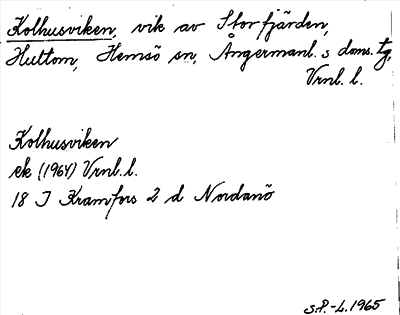 Kolhusviken, vik av Storfjärden,
Hultom, Hemsö sn, Ångermanl. s doms. tg,
Vrnl. l.
Kolhusviken
ek (1964) Vrnl. l.
18 J Kramfors 2 d Nordanö
S.P.-L. 1965